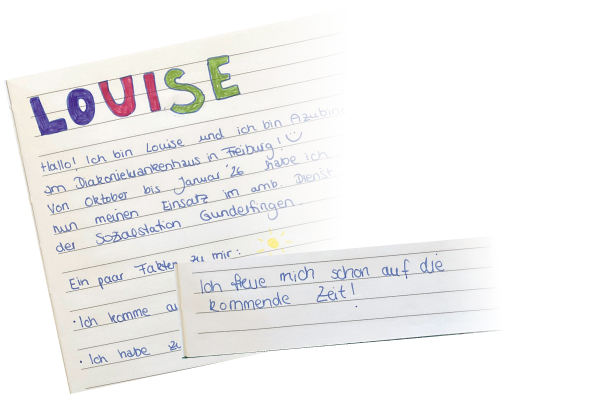 LOUISE
Hallo! Ich bin Louise und ich bin Azubine
am Diakoniekrankenhaus in Freiburg!
Von Oktober bis Januar '26 habe ich
nun meinen Einsatz im amb. Dienst
der Sozialstation Gundelfingen.
Ein paar Fakten zu mir:
· Ich komme au
· Ich habe zu
Ich freue mich schon auf die
kommende Zeit!